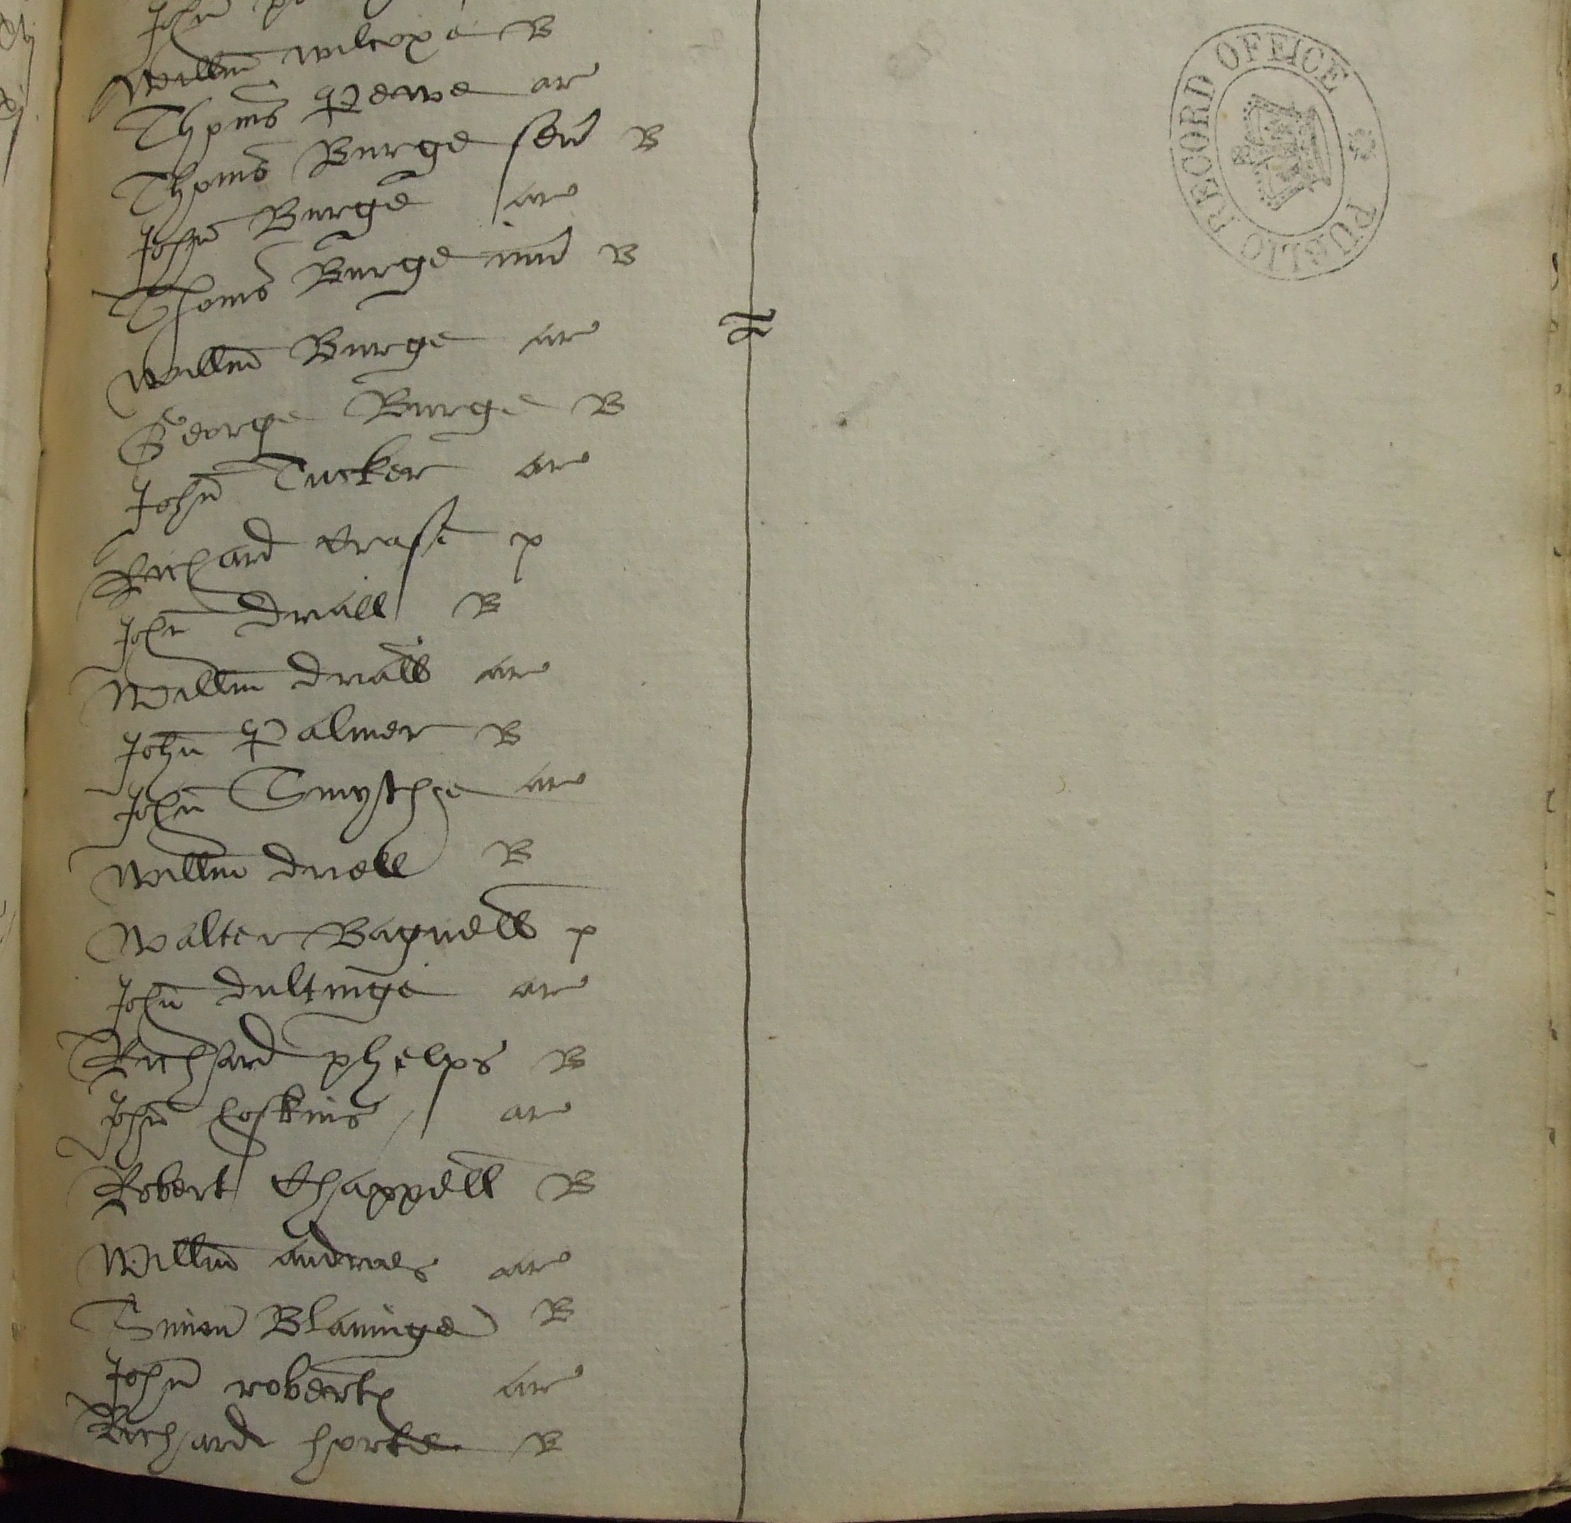 John
Willm Wilcoxe B
Thoms Pewe ar
Thoms Burge sen B
John Burge ar
Thoms Burge iun B
Willm Burge ar
George Burge B
John Tucker ar
Richard Crasse p
John Duall B
Willm Duall ar
John Palmer B
John Smythe ar
Willm Duell B
Walter Bagnell p
John Dultinge ar
Richard Phelps B
John Coskins ar
Robert Chappell B
Willm Andrwes ar
Simon Blaninge B
John Roberts ar
Richard B
PUBLIC RECORD OFFICE